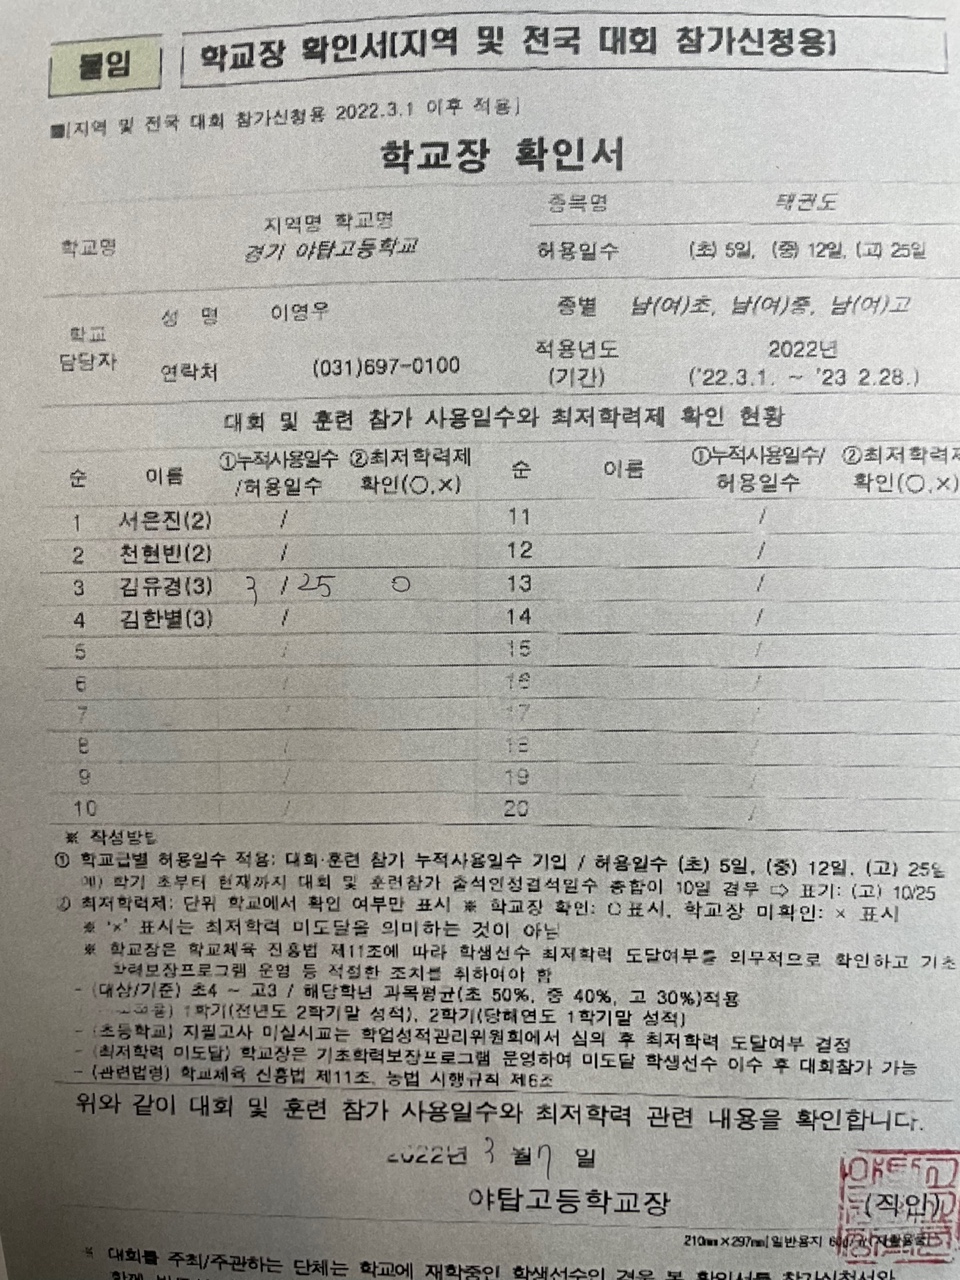 붙임 학교장 확인서[지역 및 전국 대회 참가신청용]
■[지역 및 전국 대회 참가신청용 2022.3.1 이후 적용]
학교장 확인서
학교명 지역명 학교명 경기 야탑고등학교 종목명 태권도
허용일수 (초) 5일, (중) 12일, (고) 25일
학교 담당자 성 명 이영우 종별 남(여)초, 남(여)중, 남(여)고
연락처 (031)697-0100 적용년도 (기간) 2022년 ('22.3.1. ~ '23 2.28.)
대회 및 훈련 참가 사용일수와 최저학력제 확인 현황
순 이름 ①누적사용일수 /허용일수 ②최저학력제 확인(○,×) 순 이름 ①누적사용일수/ 허용일수 ②최저학력제 확인(○,×)
1 서은진(2) / 11 /
2 천현빈(2) / 12 /
3 김유경(3) 3 / 25 ○ 13 /
4 김한별(3) / 14 /
5 / 15 /
6 / 16 /
7 / 17 /
8 / 18 /
9 / 19 /
10 / 20 /
※ 작성방법
① 학교급별 허용일수 적용: 대회·훈련 참가 누적사용일수 기입 / 허용일수 (초) 5일, (중) 12일, (고) 25일
예) 학기 초부터 현재까지 대회 및 훈련참가 출석인정결석일수 총합이 10일 경우 ⇨ 표기: (고) 10/25
② 최저학력제: 단위 학교에서 확인 여부만 표시 ※ 학교장 확인: ○표시, 학교장 미확인: × 표시
※ '×' 표시는 최저학력 미도달을 의미하는 것이 아님
※ 학교장은 학교체육 진흥법 제11조에 따라 학생선수 최저학력 도달여부를 의무적으로 확인하고 기초
학력보장프로그램 운영 등 적절한 조치를 취하여야 함
- (대상/기준) 초4 ~ 고3 / 해당학년 과목평균(초 50%, 중 40%, 고 30%)적용
1학기(전년도 2학기말 성적), 2학기(당해연도 1학기말 성적)
- (초등학교) 지필고사 미실시교는 학업성적관리위원회에서 심의 후 최저학력 도달여부 결정
- (최저학력 미도달) 학교장은 기초학력보장프로그램 운영하여 미도달 학생선수 이수 후 대회참가 가능
- (관련법령) 학교체육 진흥법 제11조, 동법 시행규칙 제6조
위와 같이 대회 및 훈련 참가 사용일수와 최저학력 관련 내용을 확인합니다.
2022년 3 월 7 일
야탑고등학교장 (직인)
210㎜×297㎜[일반용지 60g/㎡(재활용품)]
※ 대회를 주최/주관하는 단체는 학교에 재학중인 학생선수인 경우 본 확인서를 참가신청서와